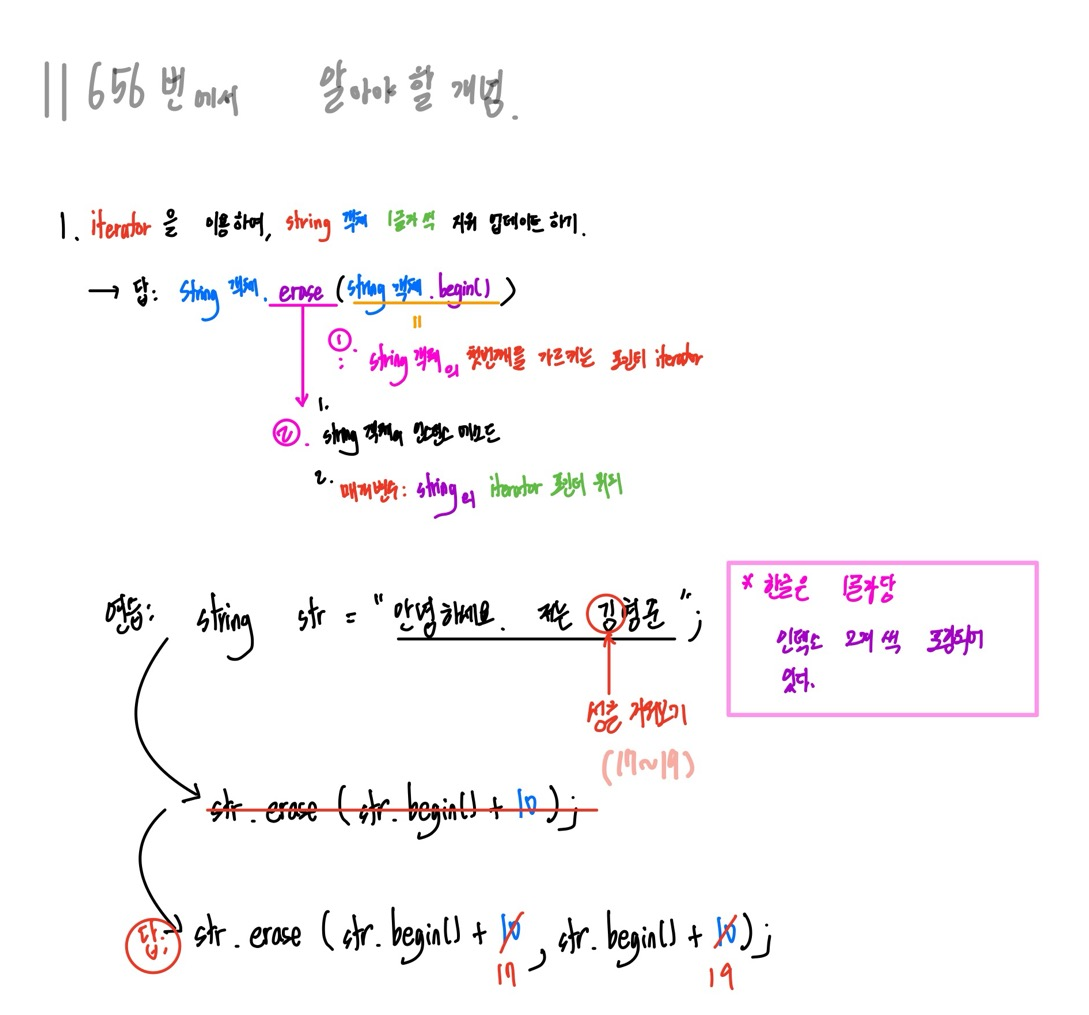 11656번에서 알아야 할 개념.
1. iterator을 이용하여, string 객체 1글자씩 지워 업데이트하기.
→ 답: string 객체.erase(string 객체.begin())
=
①: string 객체의 첫번째를 가르키는 포인터 iterator
②. 1. string 객체의 인스턴스 메소드
2. 매개변수: string의 iterator 포인터 위치
연습: string str = "안녕하세요. 저는 김형준";
* 한글은 1글자당
인덱스 2개씩 포함되어
있다.
성을 지워보기
(17~19)
str.erase(str.begin() + 10);
답: str.erase(str.begin() + 10, str.begin() + 10);
17 19